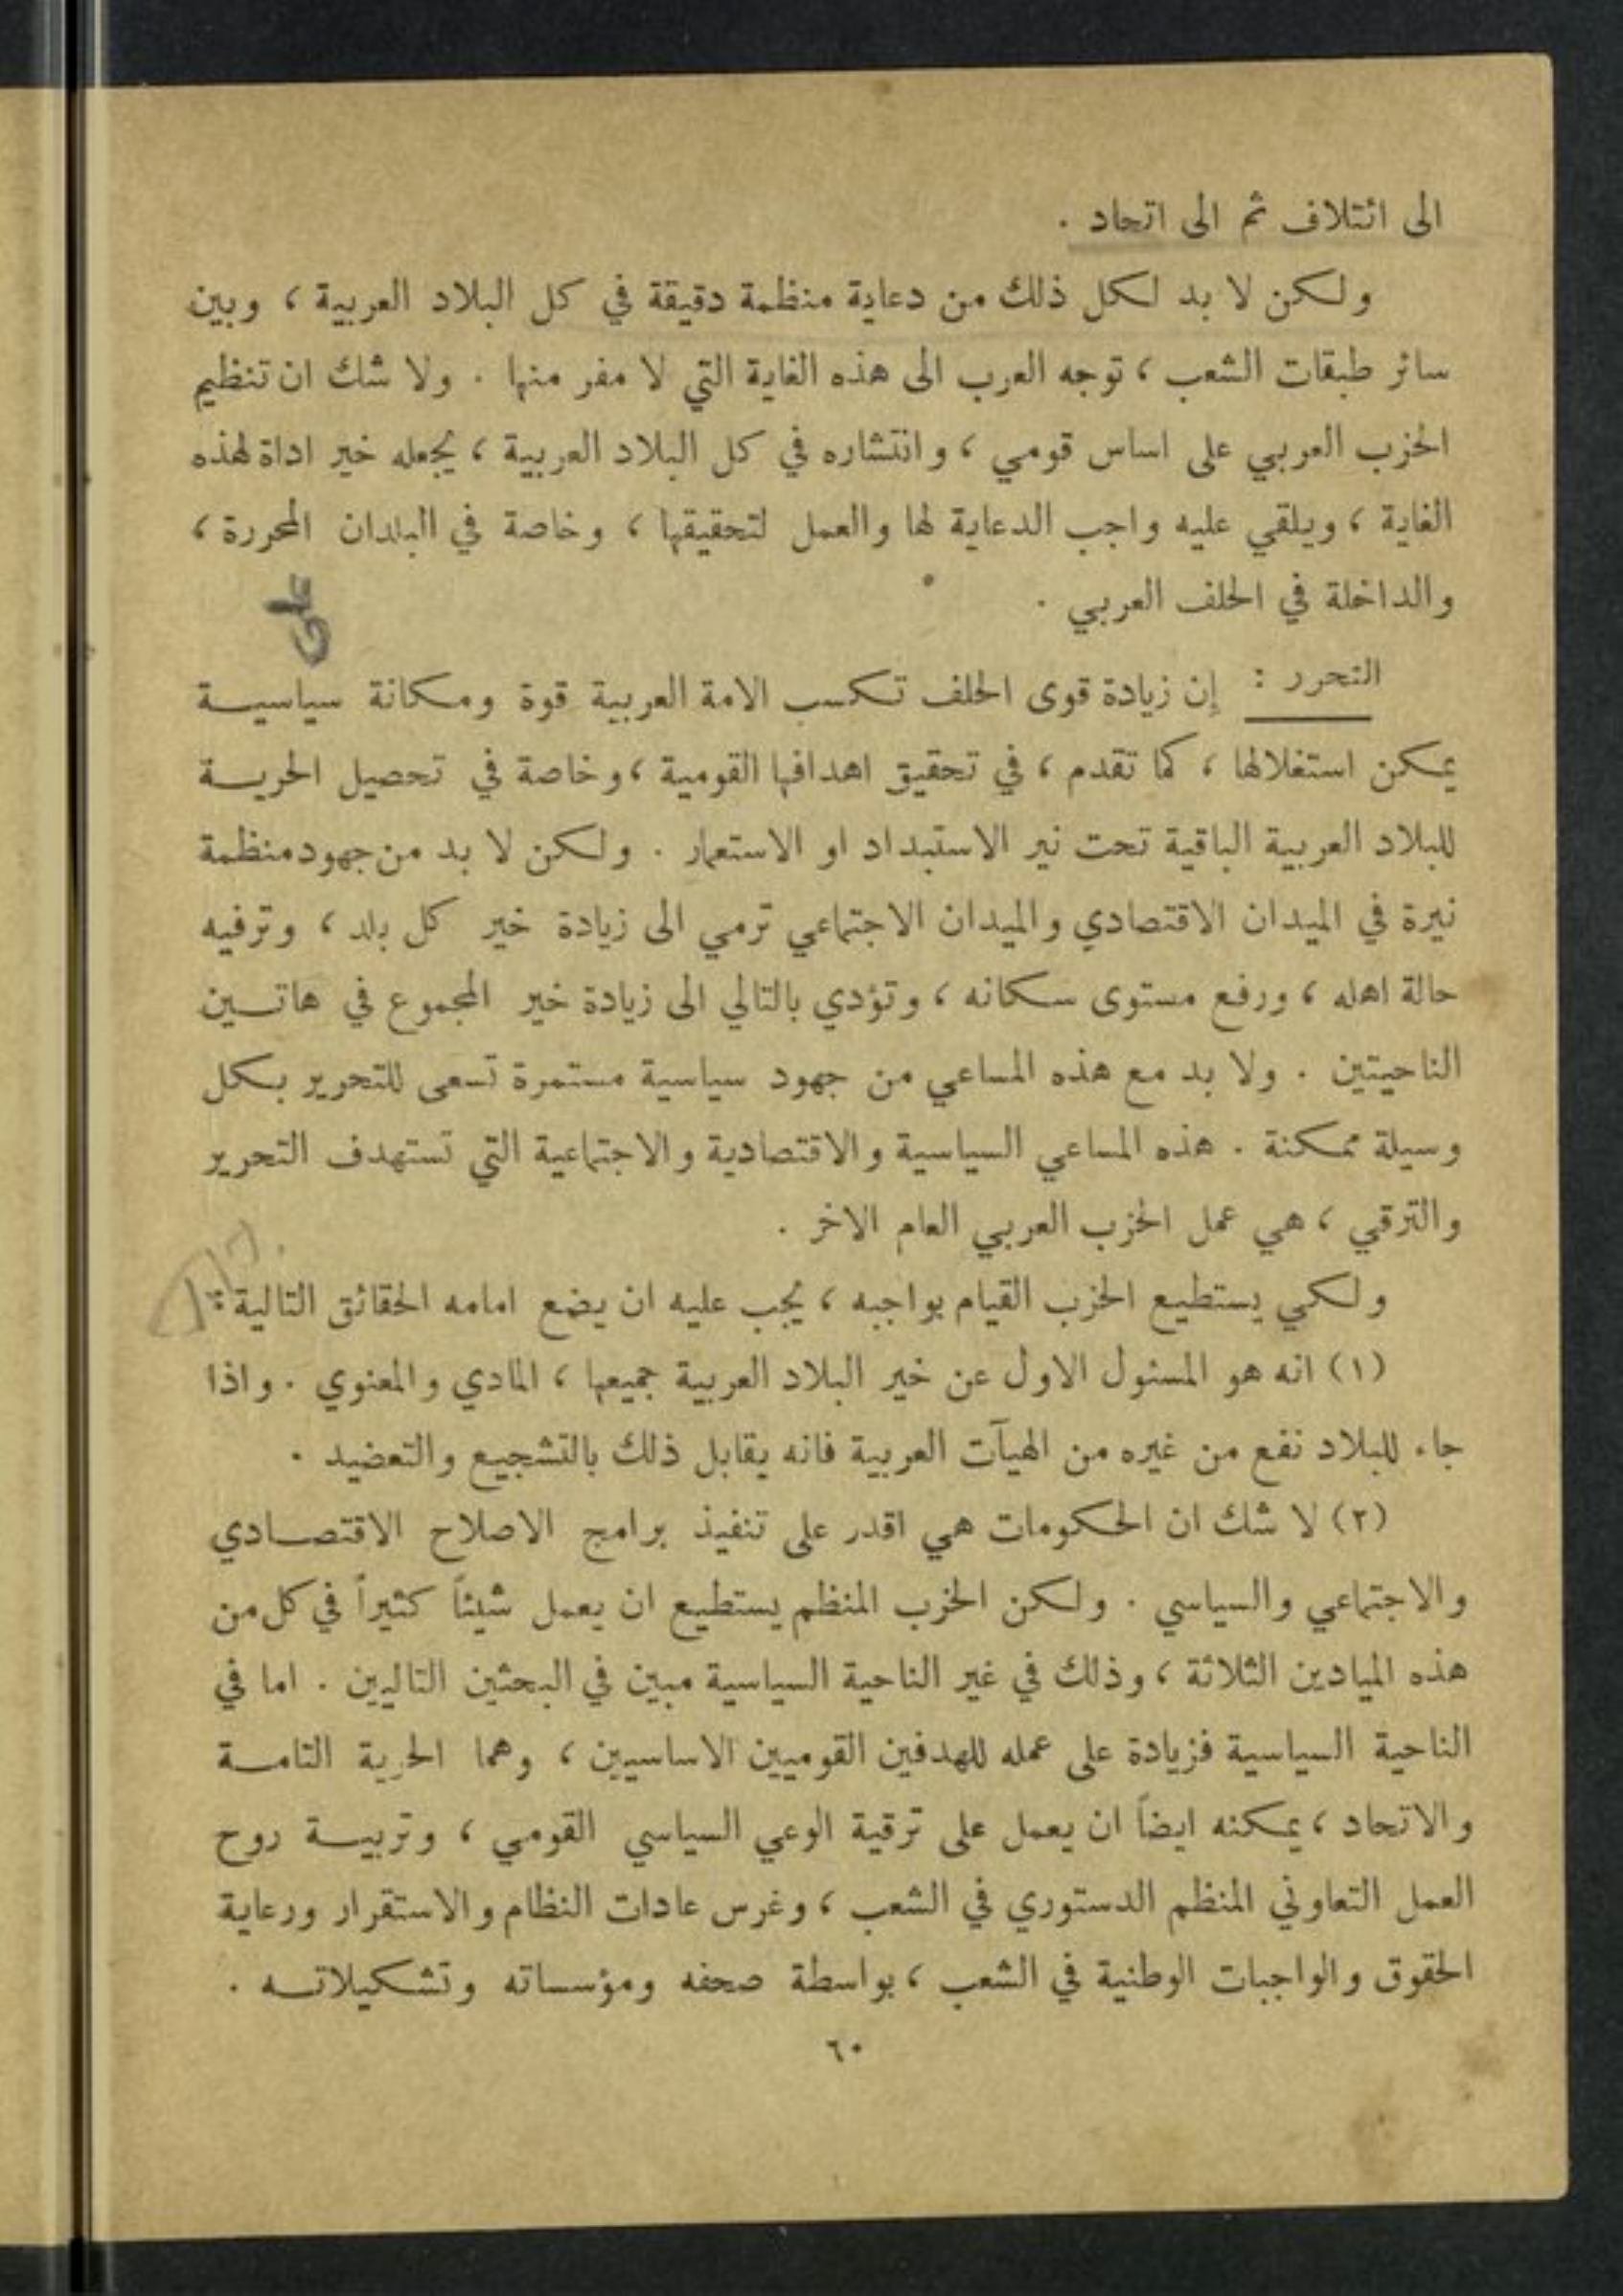 الى ائتلاف ثم الى اتحاد .
ولكن لا بد لكل ذلك من دعاية منظمة دقيقة في كل البلاد العربية ، وبين
سائر طبقات الشعب ، توجه العرب الى هذه الغاية التي لا مفر منها . ولا شك ان تنظيم
الحزب العربي على اساس قومي ، وانتشاره في كل البلاد العربية ، يجعله خير اداة لهذه
الغاية ، ويلقي عليه واجب الدعاية لها والعمل لتحقيقها ، وخاصة في البلدان المحررة ،
والداخلة في الحلف العربي .
التحرر : إن زيادة قوى الحلف تكسب الامة العربية قوة ومكانة سياسية
يمكن استغلالها ، كما تقدم ، في تحقيق اهدافها القومية ، وخاصة في تحصيل الحرية
للبلاد العربية الباقية تحت نير الاستبداد او الاستعمار . ولكن لا بد من جهود منظمة
نيرة في الميدان الاقتصادي والميدان الاجتماعي ترمي الى زيادة خير كل بلد ، وترفيه
حالة اهله ، ورفع مستوى سكانه ، وتؤدي بالتالي الى زيادة خير المجموع في هاتين
الناحيتين . ولا بد مع هذه المساعي من جهود سياسية مستمرة تسعى للتحرير بكل
وسيلة ممكنة . هذه المساعي السياسية والاقتصادية والاجتماعية التي تستهدف التحرير
والترقي ، هي عمل الحزب العربي العام الاخر .
ولكي يستطيع الحزب القيام بواجبه ، يجب عليه ان يضع امامه الحقائق التالية :
(١) انه هو المسئول الاول عن خير البلاد العربية جميعها ، المادي والمعنوي . واذا
جاء للبلاد نفع من غيره من الهيآت العربية فانه يقابل ذلك بالتشجيع والتعضيد .
(٢) لا شك ان الحكومات هي اقدر على تنفيذ برامج الاصلاح الاقتصادي
والاجتماعي والسياسي . ولكن الحزب المنظم يستطيع ان يعمل شيئاً كثيراً في كل من
هذه الميادين الثلاثة ، وذلك في غير الناحية السياسية مبين في البحثين التاليين . اما في
الناحية السياسية فزيادة على عمله للهدفين القوميين الاساسيين ، وهما الحرية التامة
والاتحاد ، يمكنه ايضاً ان يعمل على ترقية الوعي السياسي القومي ، وتربية روح
العمل التعاوني المنظم الدستوري في الشعب ، وغرس عادات النظام والاستقرار ورعاية
الحقوق والواجبات الوطنية في الشعب ، بواسطة صحفه ومؤسساته وتشكيلاته .
٦٠